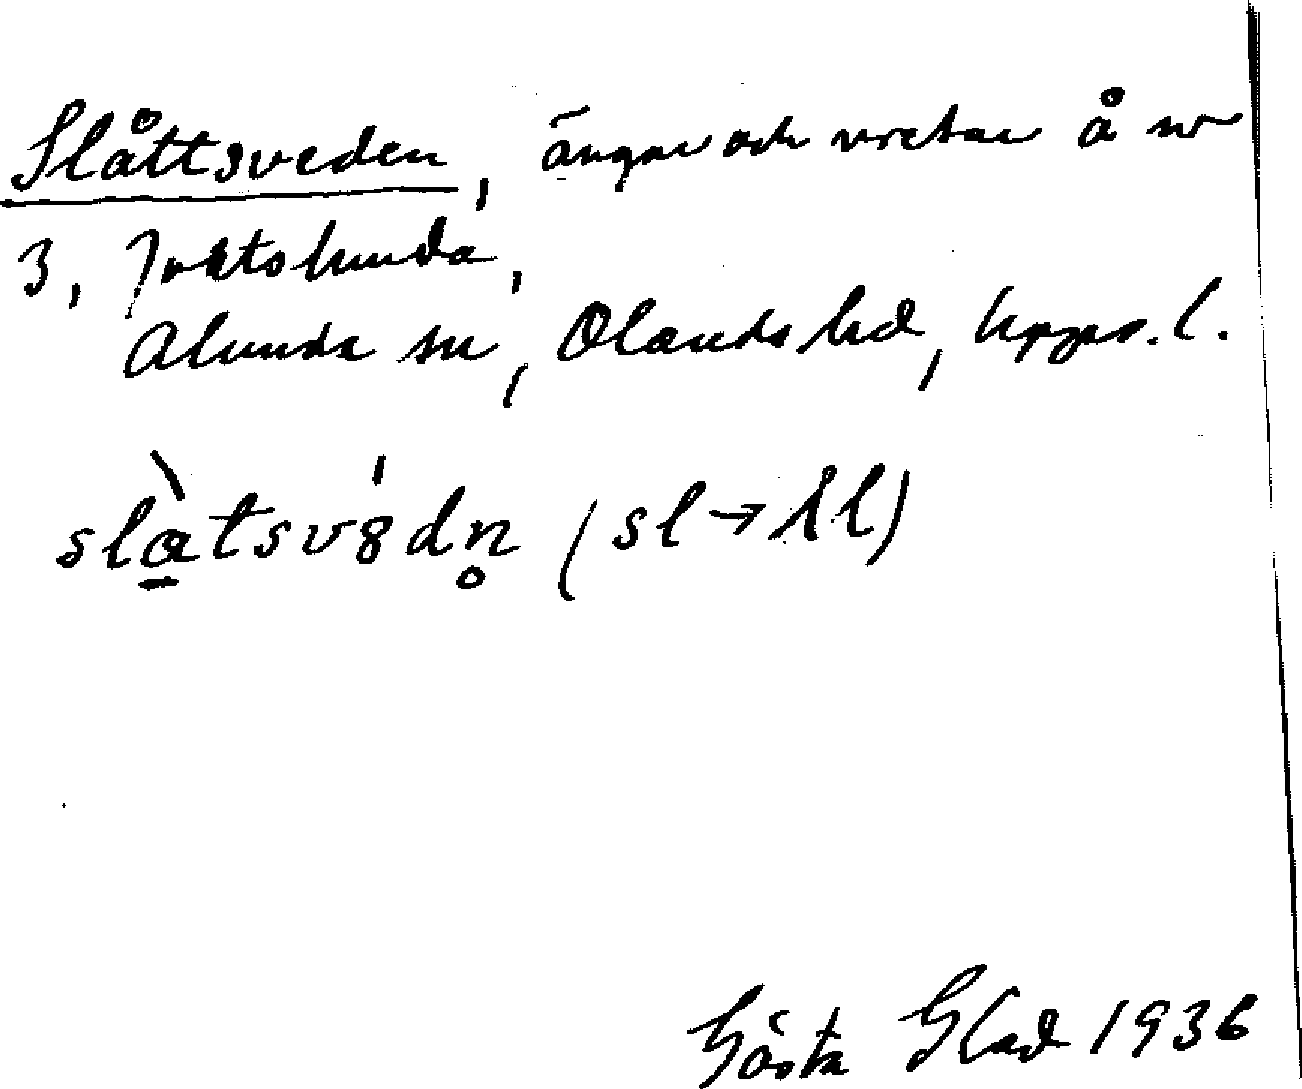 Slåttsveden, ängar och vretar å nr
3, Foktshunda,
Alunda sn, Olands hd, Upps. l.
slàtsvédn̥ (sl → λl)
Gösta Glad 1936